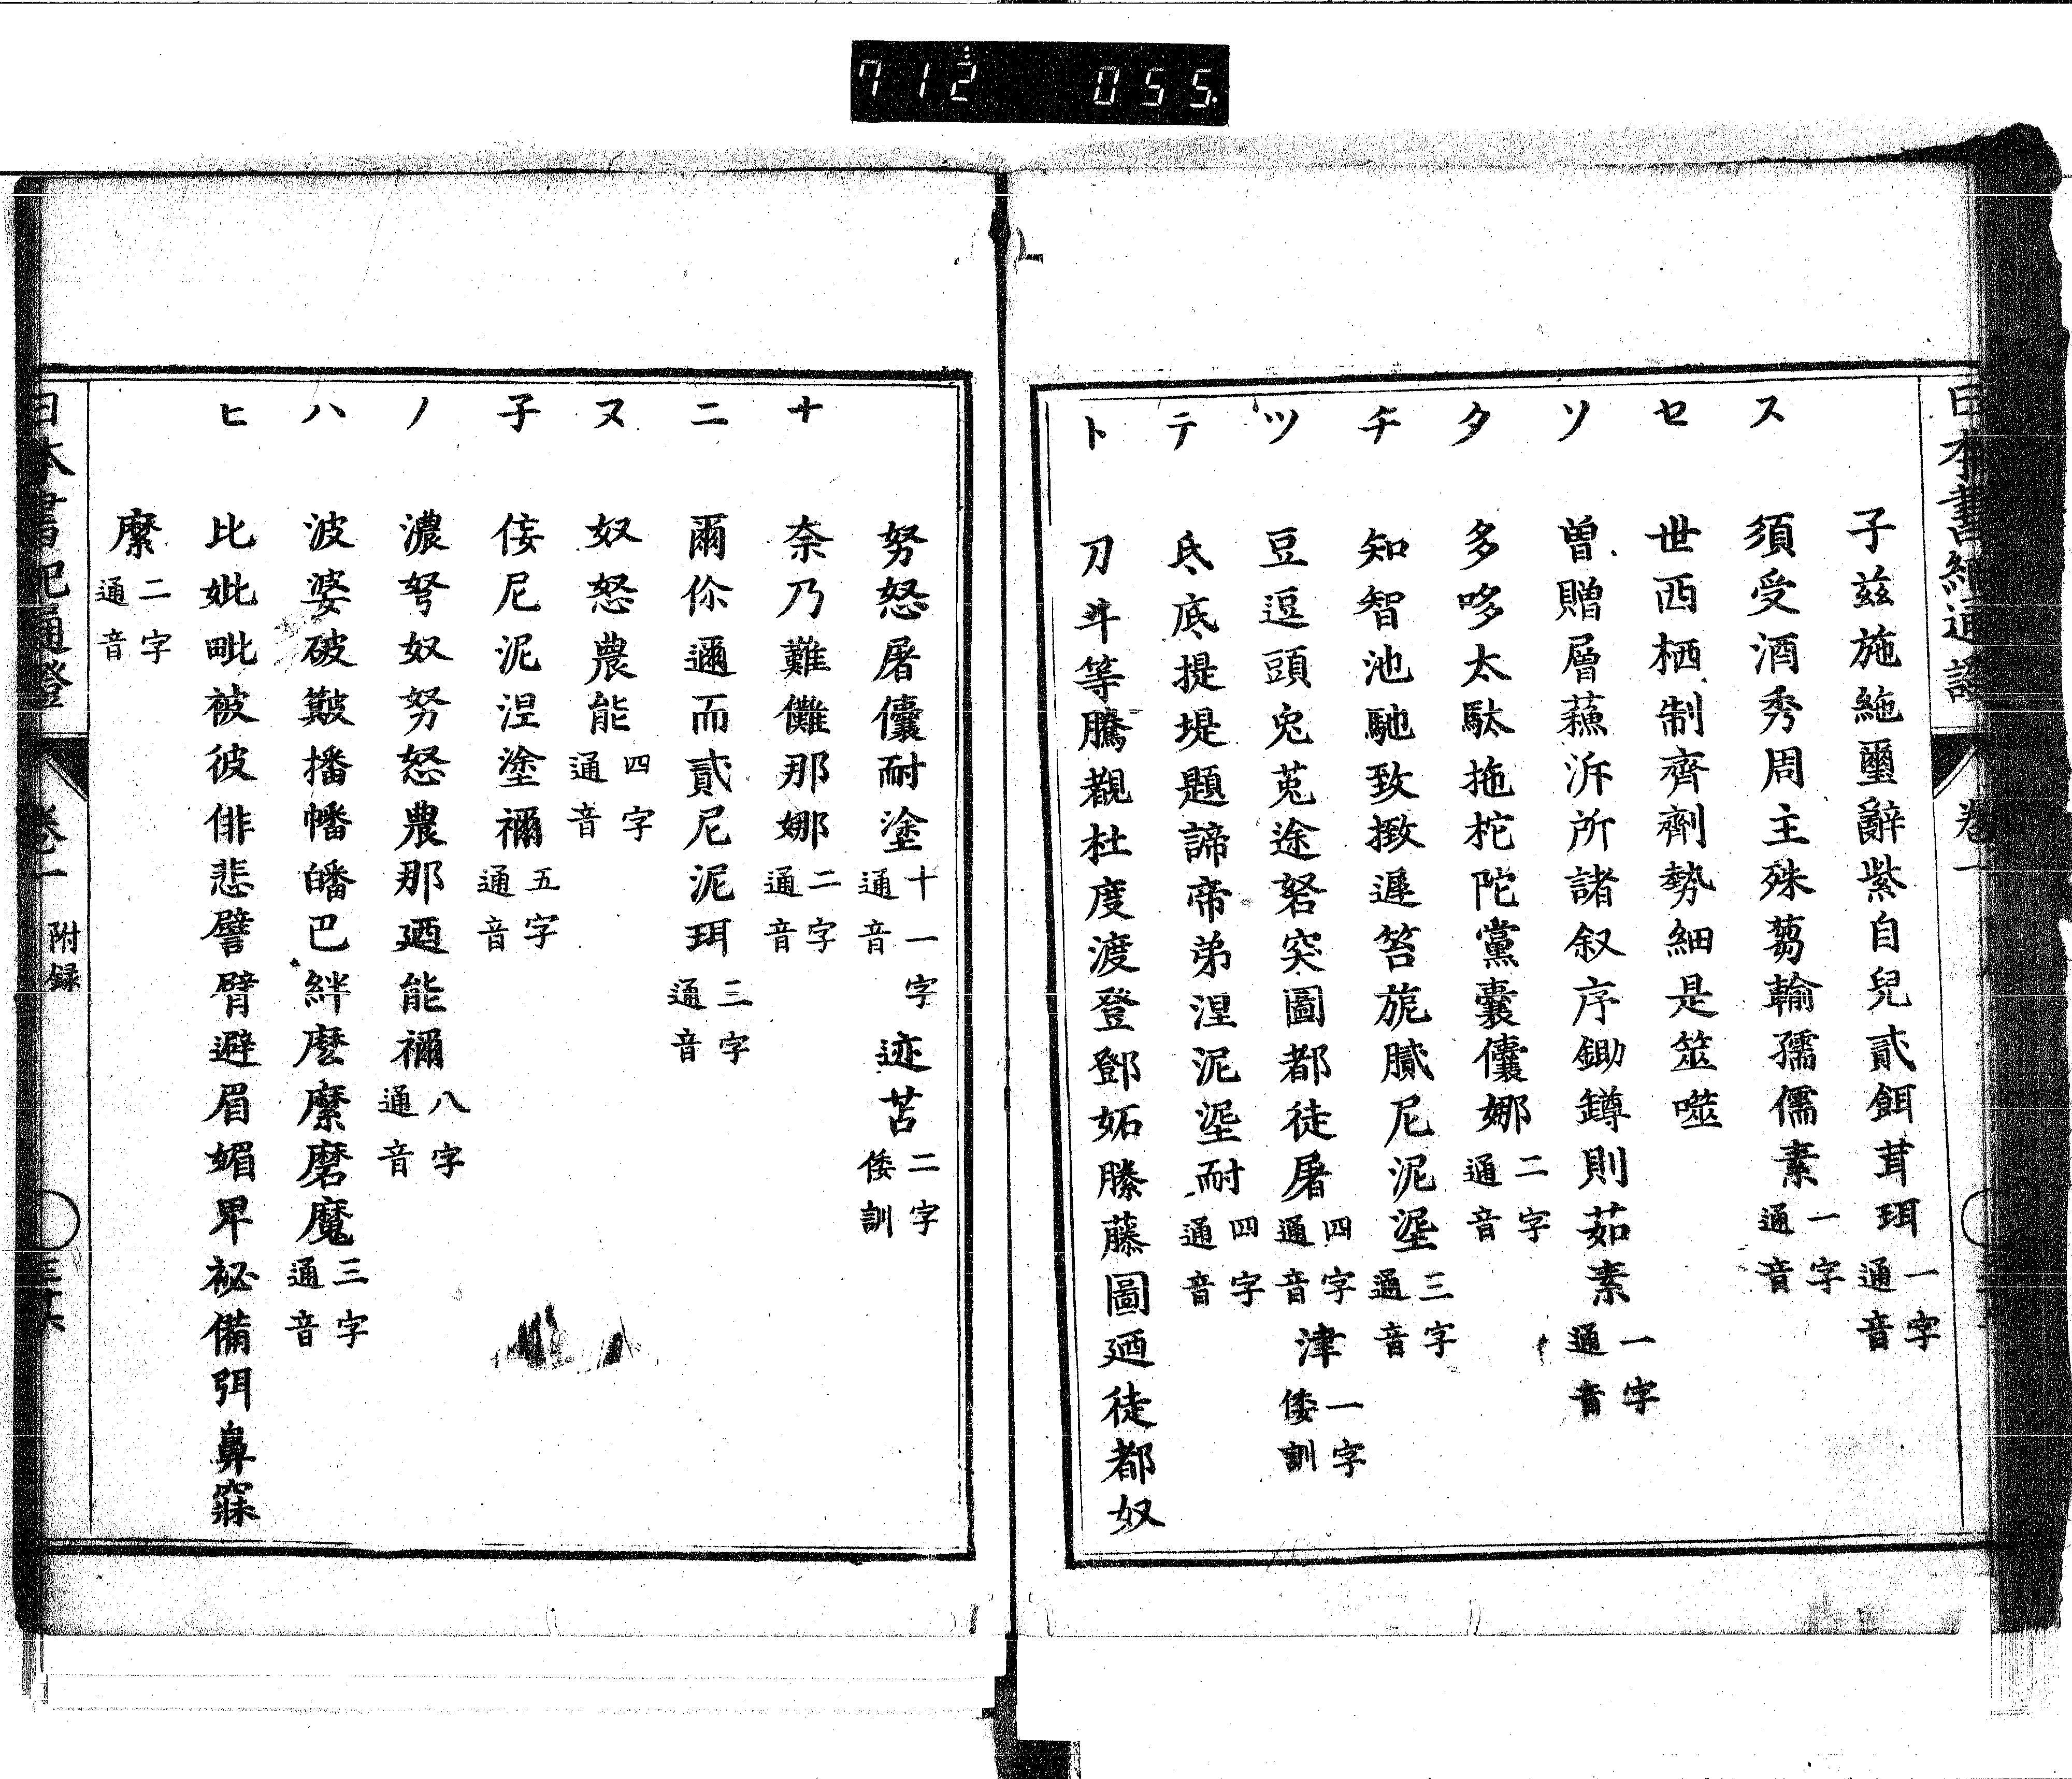 712 055
日本書紀通證 卷一
子兹施絁璽辭紫自兒貳餌茸珥一字通音
ス 須受酒秀周主殊蒭輸孺儒素一字通音
セ 世西栖制齊劑勢細是筮噬
ソ 曽贈層蘓泝所諸叙序鋤鐏則茹素一字通音
タ 多哆太駄拖柁陀黨囊儾娜二字通音
チ 知智池馳致緻遲笞旎膩尼泥埿三字通音
ツ 豆逗頭兎菟途砮突圖都徒屠四字通音 津一字倭訓
テ 氐底提堤題諦帝弟涅泥埿耐四字通音
ト 刀斗等騰覩杜度渡登鄧妬滕藤圖廼徒都奴
努怒屠儾耐塗十一字通音 迹苫二字倭訓
ナ 奈乃難儺那娜二字通音
ニ 爾伱邇而貳尼泥珥三字通音
ヌ 奴怒農能四字通音
子 倿尼泥涅塗禰五字通音
ノ 濃弩奴努怒農那廼能禰八字通音
ハ 波婆破簸播幡皤巴絆麼縻磨魔三字通音
ヒ 比妣毗被彼俳悲譬臂避眉媚卑祕備弭鼻寐
縻二字通音
日本書紀通證 卷一 附録